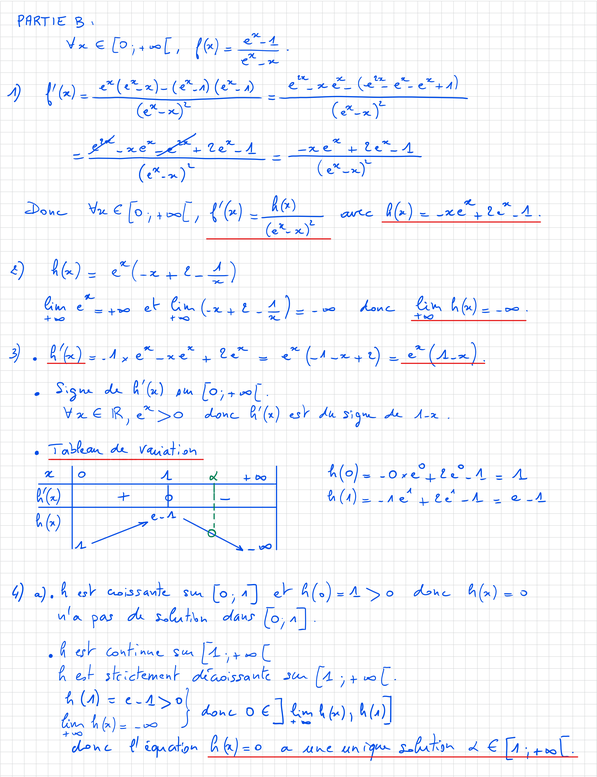 PARTIE B :
∀x ∈ [0 ; +∞[, f(x) = (e^x - 1)/(e^x - x).
1) f'(x) = (e^x(e^x - x) - (e^x - 1)(e^x - 1))/(e^x - x)² = (e^2x - xe^x - (e^2x - e^x - e^x + 1))/(e^x - x)²
= (e^2x - xe^x - e^2x + 2e^x - 1)/(e^x - x)² = (-xe^x + 2e^x - 1)/(e^x - x)²
Donc ∀x ∈ [0 ; +∞[, f'(x) = h(x)/(e^x - x)² avec h(x) = -xe^x + 2e^x - 1.
2) h(x) = e^x(-x + 2 - 1/x)
lim +∞ e^x = +∞ et lim +∞ (-x + 2 - 1/x) = -∞ donc lim +∞ h(x) = -∞.
3) • h'(x) = -1 × e^x - xe^x + 2e^x = e^x(-1 - x + 2) = e^x(1 - x).
• Signe de h'(x) sur [0 ; +∞[.
∀x ∈ ℝ, e^x > 0 donc h'(x) est du signe de 1-x.
• Tableau de variation
x 0 1 α +∞
h'(x) + 0 -
h(x) 1 e-1 -∞
h(0) = -0×e^0 + 2e^0 - 1 = 1
h(1) = -1e^1 + 2e^1 - 1 = e - 1
4) a) • h est croissante sur [0 ; 1] et h(0) = 1 > 0 donc h(x) = 0
n'a pas de solution dans [0 ; 1].
• h est continue sur [1 ; +∞[
h est strictement décroissante sur [1 ; +∞[.
h(1) = e - 1 > 0
lim +∞ h(x) = -∞ } donc 0 ∈ ] lim +∞ h(x) ; h(1)]
donc l'équation h(x) = 0 a une unique solution α ∈ [1 ; +∞[.